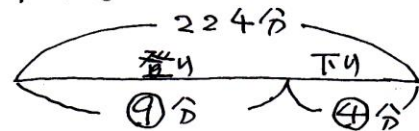 224分
登り 下り
⑨分 ④分